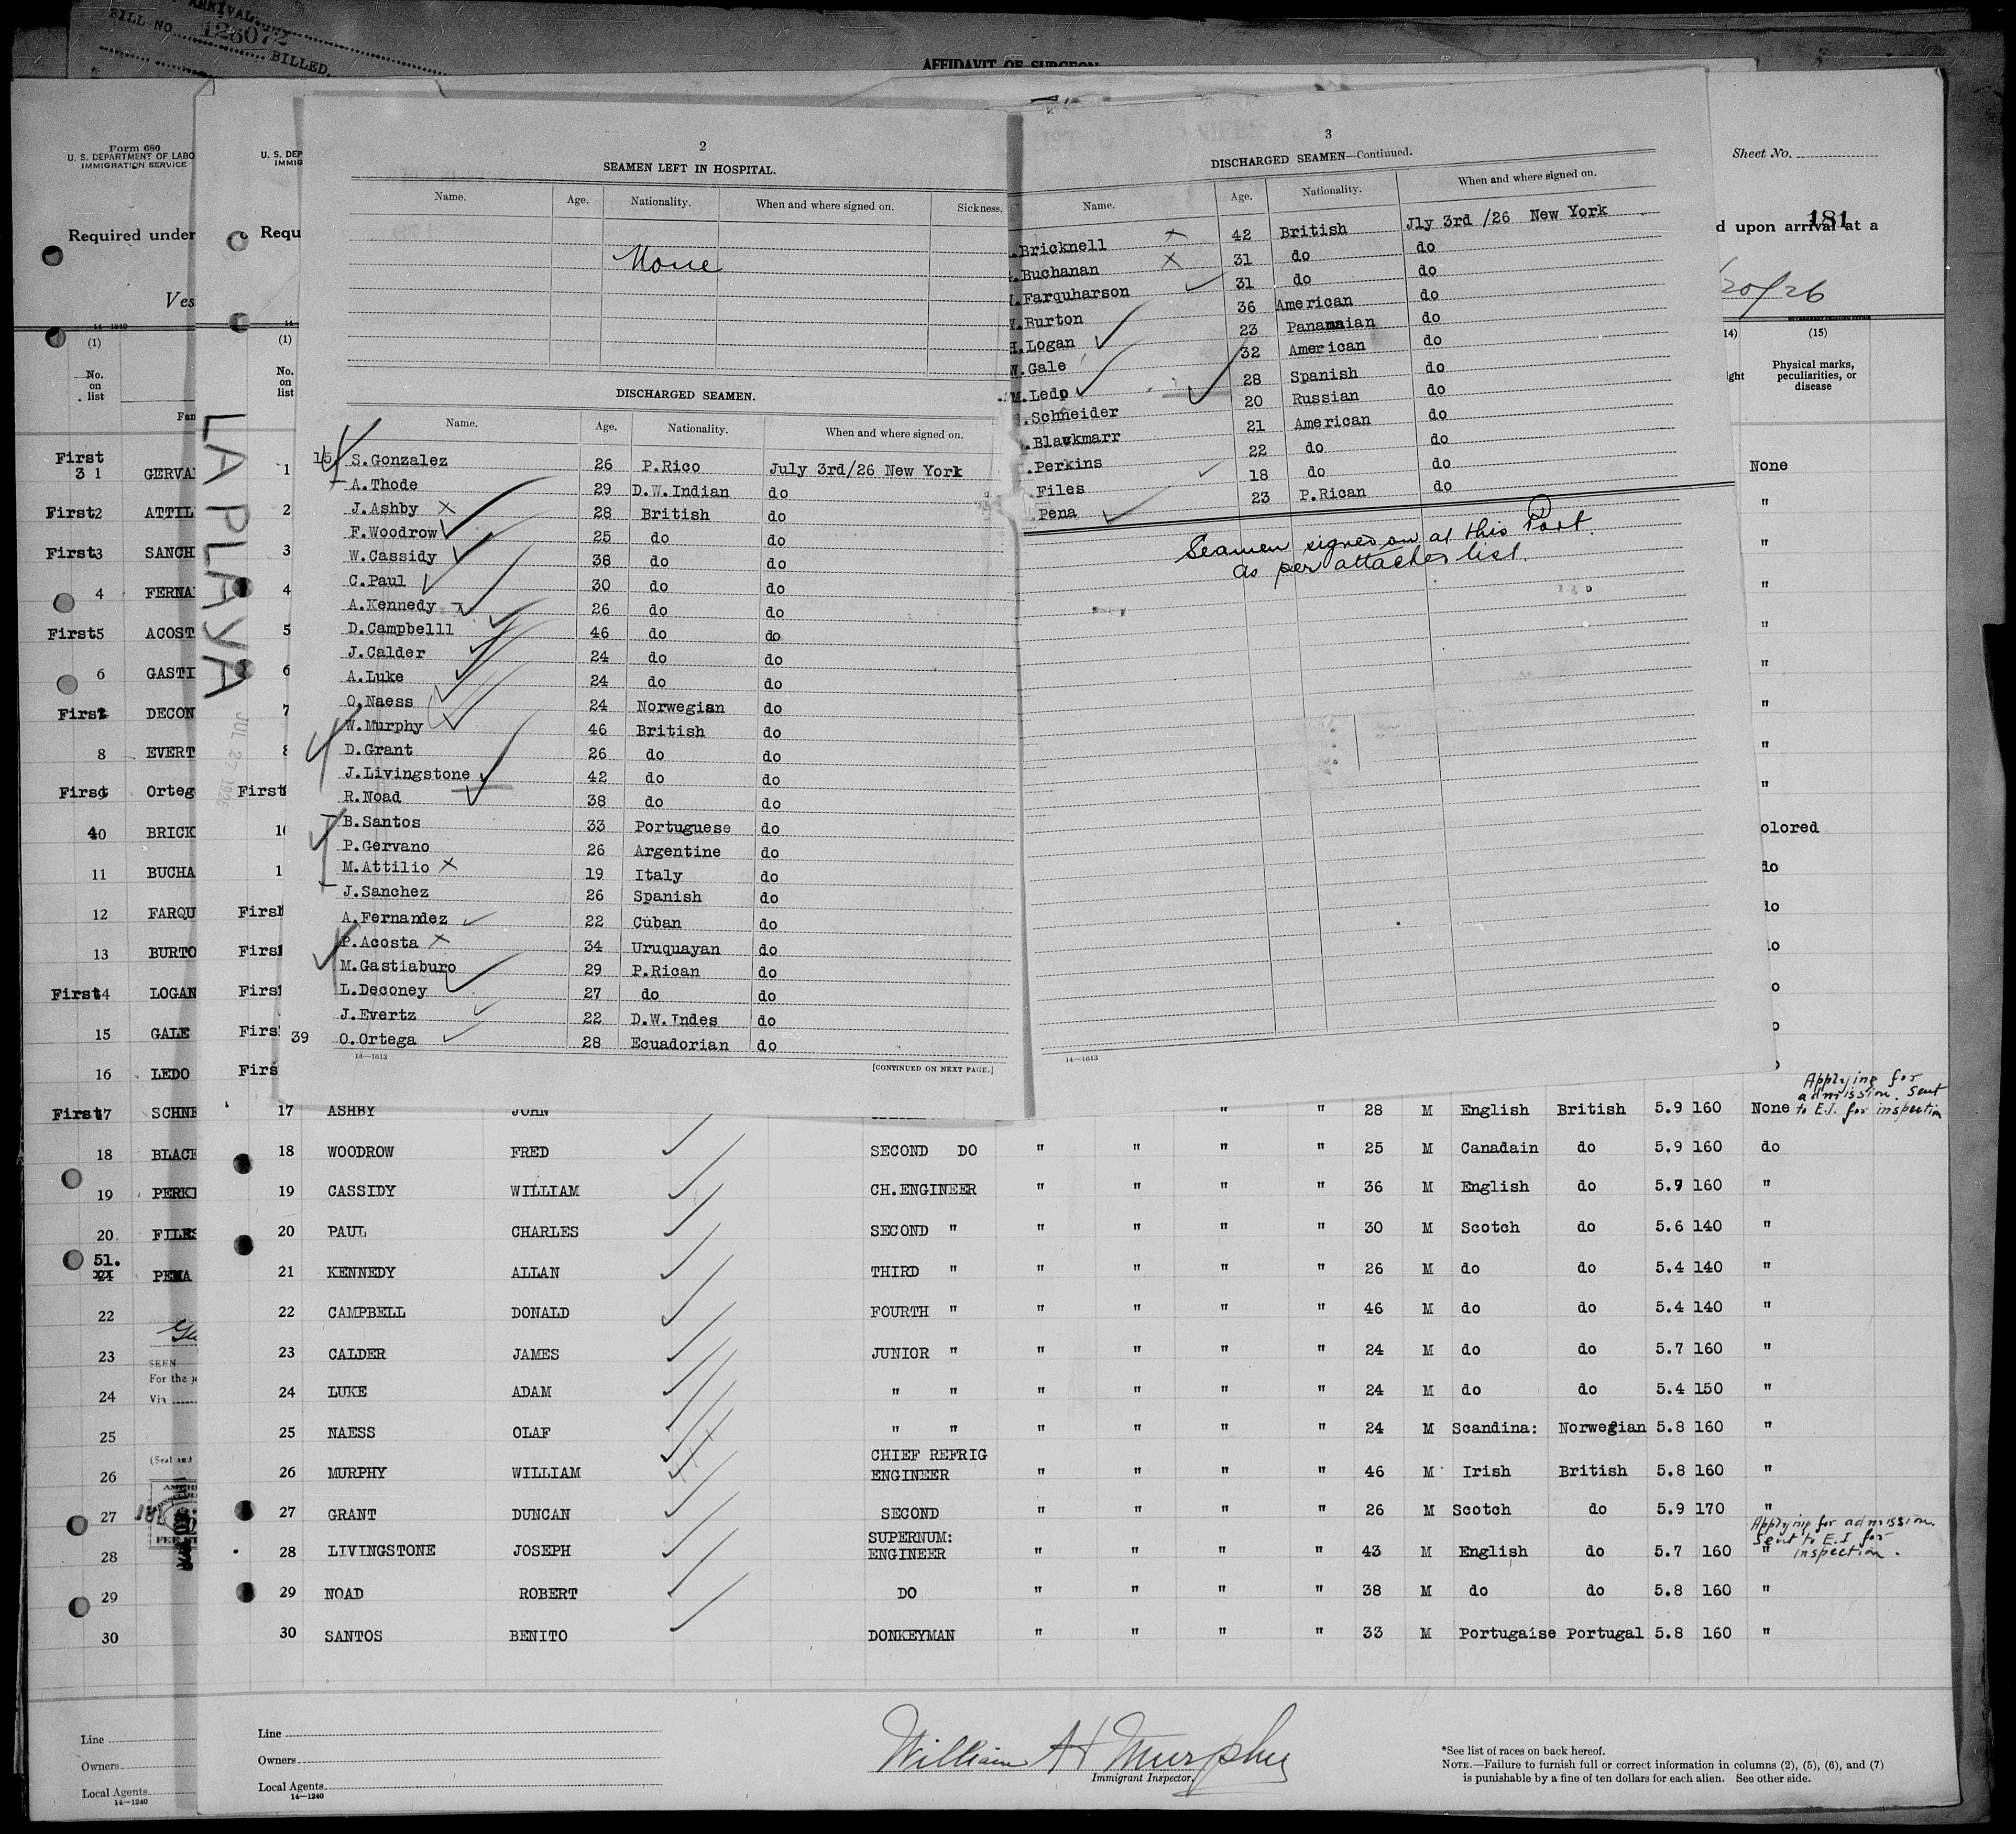 ARRIVAL
BILL NO. 126072
BILLED.
AFFIDAVIT OF SURGEON
Form 680
U. S. DEPARTMENT OF LABO
IMMIGRATION SERVICE
Required under
Ves
14—1240
(1)
No.
on
list
Fam
First
3 1 GERVA
First2 ATTIL
First3 SANCH
4 FERNA
First5 ACOST
6 GASTI
First DECON
8 EVERT
First9 Orteg
40 BRICK
11 BUCHA
12 FARQU
13 BURTO
First14 LOGAN
15 GALE
16 LEDO
First17 SCHNE
18 BLACK
19 PERKI
20. FILES
51.
21 PENA
22
23
SEEN
For the
24
Via
25
(Seal and
26
27
28
29
30
Line
Owners
Local Agents
14—1240
U. S. DEP
IMMIG
Requ
14
(1)
No.
on
list
LA PLAYA
JUL 27 1926
1
2
3
4
5
6
7
8
First
10
1
First
First
First
First
Firs
2
SEAMEN LEFT IN HOSPITAL.
Name. Age. Nationality. When and where signed on. Sickness.
None
DISCHARGED SEAMEN.
Name. Age. Nationality. When and where signed on.
15 S.Gonzalez 26 P.Rico July 3rd/26 New York
A.Thode 29 D.W.Indian do
J.Ashby X 28 British do
F.Woodrow 25 do do
W.Cassidy 38 do do
C.Paul 30 do do
A.Kennedy 26 do do
D.Campbelll 46 do do
J.Calder 24 do do
A.Luke 24 do do
O.Naess 24 Norwegian do
W.Murphy 46 British do
D.Grant 26 do do
J.Livingstone 42 do do
R.Noad 38 do do
B.Santos 33 Portuguese do
P.Gervano 26 Argentine do
M.Attilio X 19 Italy do
J.Sanchez 26 Spanish do
A.Fernandez 22 Cuban do
P.Acosta X 34 Uruquayan do
M.Gastiaburo 29 P.Rican do
L.Deconey 27 do do
J.Evertz 22 D.W.Indes do
39 O.Ortega 28 Ecuadorian do
14—1613
[CONTINUED ON NEXT PAGE.]
3
DISCHARGED SEAMEN—Continued.
Name. Age. Nationality. When and where signed on.
.Bricknell X 42 British Jly 3rd /26 New York
.Buchanan X 31 do do
.Farquharson 31 do do
.Burton 36 American do
H.Logan 23 Panamaian do
W.Gale 32 American do
M.Ledo 28 Spanish do
.Schneider 20 Russian do
.Blavkmarr 21 American do
.Perkins 22 do do
Files 18 do do
.Pena 23 P.Rican do
Seamen signed on at this Port.
as per attached list.
14—1613
Sheet No.
181
d upon arrival at a
/20/26
14) (15)
ight Physical marks,
peculiarities, or
disease
None
"
"
"
"
"
"
"
"
olored
do
lo
lo
o
o
Applying for
admission. Sent
to E.I. for inspection
17 ASHBY JOHN " " 28 M English British 5.9 160 None
18 WOODROW FRED SECOND DO " " " " 25 M Canadain do 5.9 160 do
19 CASSIDY WILLIAM CH.ENGINEER " " " " 36 M English do 5.9 160 "
20 PAUL CHARLES SECOND " " " " " 30 M Scotch do 5.6 140 "
21 KENNEDY ALLAN THIRD " " " " " 26 M do do 5.4 140 "
22 CAMPBELL DONALD FOURTH " " " " " 46 M do do 5.4 140 "
23 CALDER JAMES JUNIOR " " " " " 24 M do do 5.7 160 "
24 LUKE ADAM " " " " " " 24 M do do 5.4 150 "
25 NAESS OLAF " " " " " " 24 M Scandina: Norwegian 5.8 160 "
CHIEF REFRIG
26 MURPHY WILLIAM ENGINEER " " " " 46 M Irish British 5.8 160 "
27 GRANT DUNCAN SECOND " " " " 26 M Scotch do 5.9 170 "
SUPERNUM:
Applying for admission.
Sent to E.I for
inspection.
28 LIVINGSTONE JOSEPH ENGINEER " " " " 43 M English do 5.7 160 "
29 NOAD ROBERT DO " " " " 38 M do do 5.8 160 "
30 SANTOS BENITO DONKEYMAN " " " " 33 M Portugaise Portugal 5.8 160 "
Line
Owners
Local Agents
14—1240
William H Murphy
Immigrant Inspector.
*See list of races on back hereof.
NOTE.—Failure to furnish full or correct information in columns (2), (5), (6), and (7)
is punishable by a fine of ten dollars for each alien. See other side.